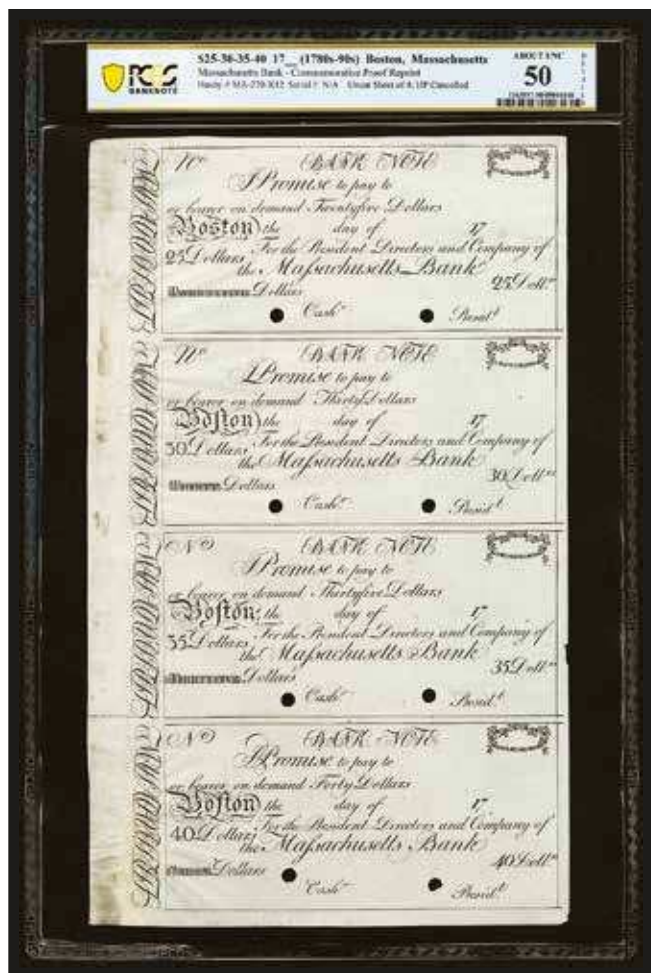 $25-30-35-40 17__ (1780s-90s) Boston, Massachusetts
Massachusetts Bank - Commemorative Proof Reprint
Serial #: N/A Uncut Sheet of 4, HP Cancelled
PCGS
BANKNOTE
ABOUT UNC
50
DETAILS
No
BANK NOTE
I Promise to pay to
or bearer on demand Twentyfive Dollars
Boston the day of 17
25 Dollars For the President Directors and Company of
the Maſsachusetts Bank
25 Doll.rs
Dollars
Cashr Presid.t
No
BANK NOTE
I Promise to pay to
or bearer on demand Thirty Dollars
Boſton the day of 17
30 Dollars For the President Directors and Company of
the Maſsachusetts Bank
30 Doll.rs
Dollars
Cashr Presid.t
No
BANK NOTE
I Promise to pay to
or bearer on demand Thirtyfive Dollars
Boſton the day of 17
35 Dollars For the President Directors and Company of
the Maſsachusetts Bank
35 Doll.rs
Dollars
Cashr Presid.t
No
BANK NOTE
I Promise to pay to
or bearer on demand Forty Dollars
Boſton the day of 17
40 Dollars For the President Directors and Company of
the Maſsachusetts Bank
40 Doll.rs
Dollars
Cashr Presid.t